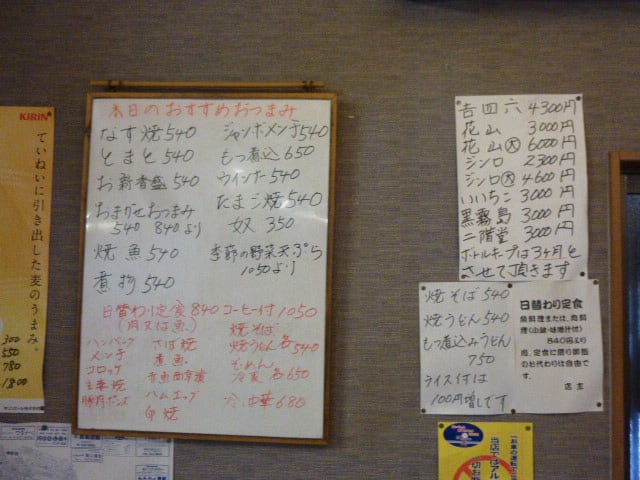 KIRIN
ていねいに引き出した麦のうまみ。
300
550
780
1800
本日のおすすめおつまみ
なす焼 540
とまと 540
お新香盛 540
おまかせおつまみ
540 840より
焼魚 540
煮物 540
ジャンボメンチ 540
もつ煮込 650
ウインナー 540
たまご焼 540
奴 350
季節の野菜天ぷら
1050より
日替わり定食 840 コーヒー付 1050
(肉又は魚)
ハンバーグ
メンチ
コロッケ
生姜焼
さば焼
煮魚
赤魚西京漬
ハムエッグ
焼そば
焼うどん 各540
らーめん
冷麦 各650
冷し中華 680
吉四六 4300円
花山 3000円
花山(大) 6000円
ジンロ 2300円
ジンロ(大) 4600円
いいちこ 3000円
黒霧島 3000円
二階堂 3000円
ボトルキープは3ヶ月と
させて頂きます
焼そば 540
焼うどん 540
もつ煮込みうどん
750
ライス付は
100円増しです
日替わり定食
魚料理または、肉料
理(小鉢・味噌汁付)
840円より
尚、定食に限り御飯
のお代わりは自由で
す。
店主